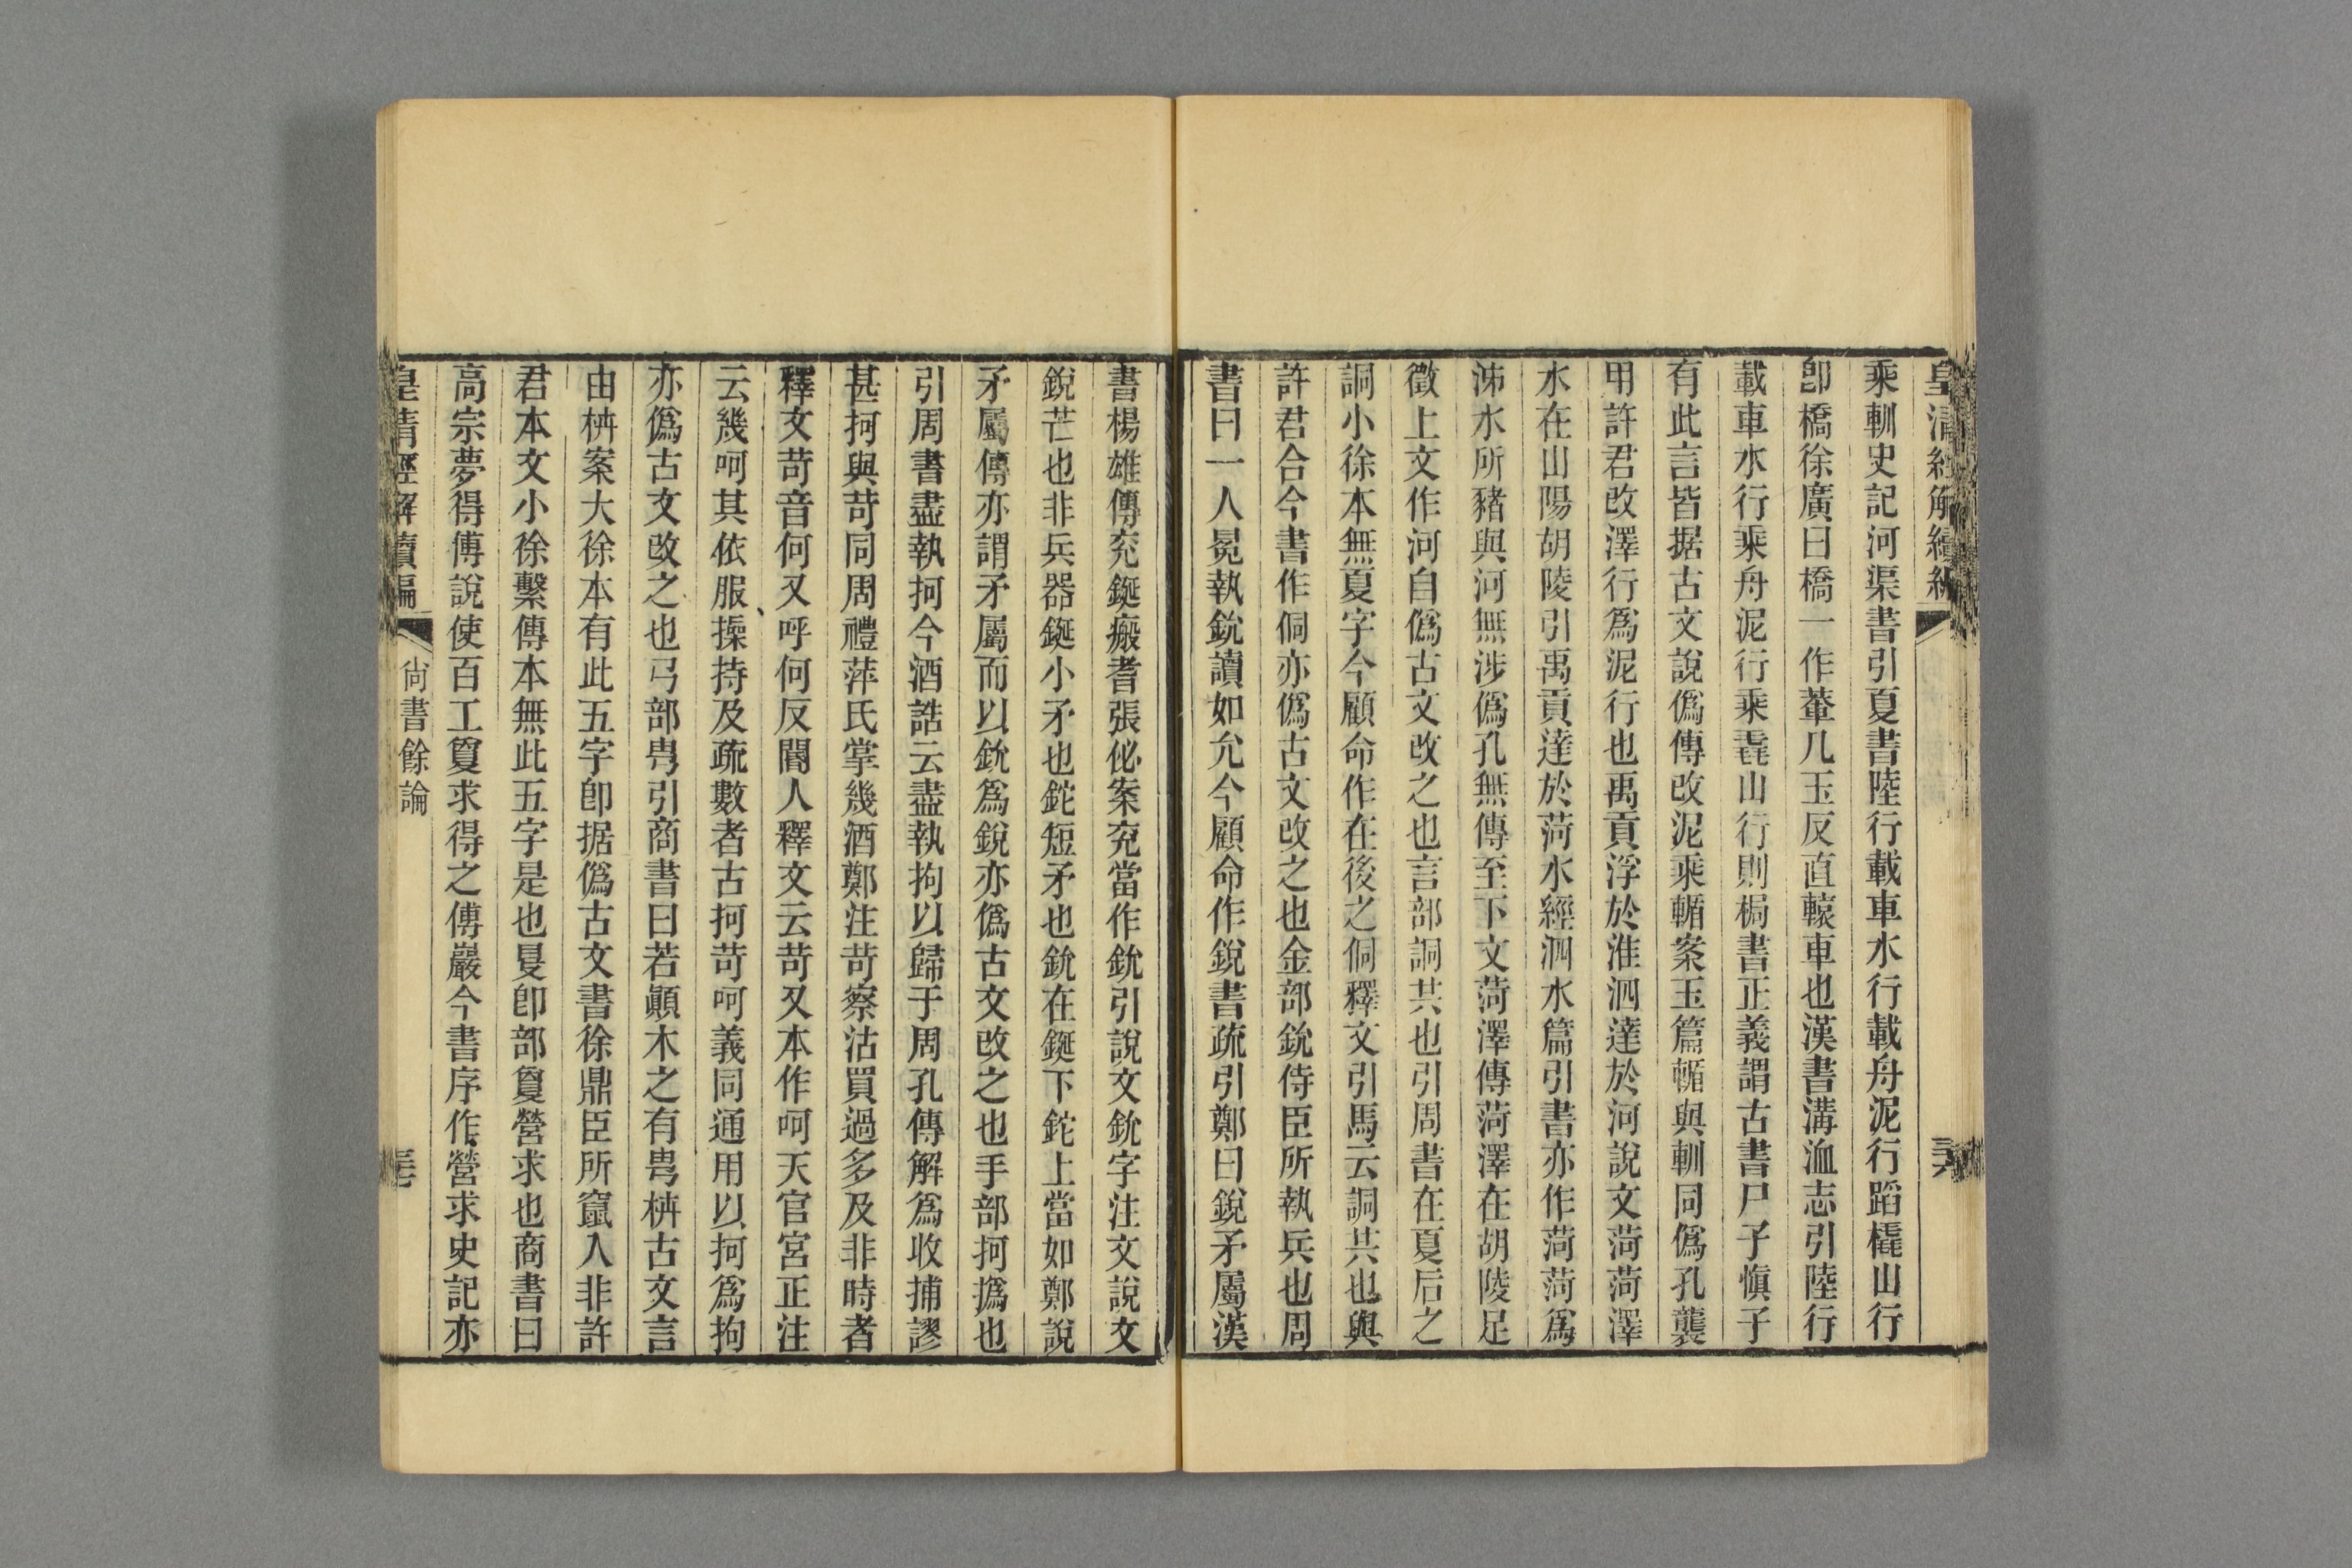 皇清經解續編
乘輴史記河渠書引夏書陸行載車水行載舟泥行蹈橇山行
卽橋徐廣曰橋一作輂几玉反直轅車也漢書溝洫志引陸行
載車水行乘舟泥行乘毳山行則梮書正義謂古書尸子愼子
有此言皆据古文說僞傳改泥乘輴案玉篇輴與輴同僞孔襲
用許君改澤行爲泥行也禹貢浮於淮泗達於河說文菏菏澤
水在山陽胡陵引禹貢達於菏水經泗水篇引書亦作菏菏爲
泲水所豬與河無涉僞孔無傳至下文菏澤傳菏澤在胡陵足
徵上文作河自僞古文改之也言部詷共也引周書在夏后之
詷小徐本無夏字今顧命作在後之侗釋文引馬云詷共也與
許君合今書作侗亦僞古文改之也金部鈗侍臣所執兵也周
書曰一人冕執鈗讀如允今顧命作銳書疏引鄭曰銳矛屬漢
書楊雄傳兖鋋瘢耆張佖案兖當作鈗引說文鈗字注文說文
銳芒也非兵器鋋小矛也鉈短矛也鈗在鋋下鉈上當如鄭說
矛屬傳亦謂矛屬而以鈗爲銳亦僞古文改之也手部抲撝也
引周書盡執抲今酒誥云盡執拘以歸于周孔傳解爲收捕謬
甚抲與苛同周禮萍氏掌幾酒鄭注苛察沽買過多及非時者
釋文苛音何又呼何反閽人釋文云苛又本作呵天官宮正注
云幾呵其依服操持及疏數者古抲苛呵義同通用以抲爲拘
亦僞古文改之也弓部甹引商書曰若顚木之有甹枿古文言
由枿案大徐本有此五字卽据僞古文書徐鼎臣所竄入非許
君本文小徐繫傳本無此五字是也夏卽部敻營求也商書曰
高宗夢得傅說使百工敻求得之傅巖今書序作營求史記亦
皇清經解續編
尙書餘論